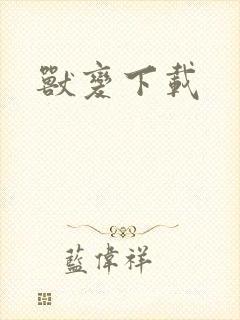 獸变下載
藍偉祥